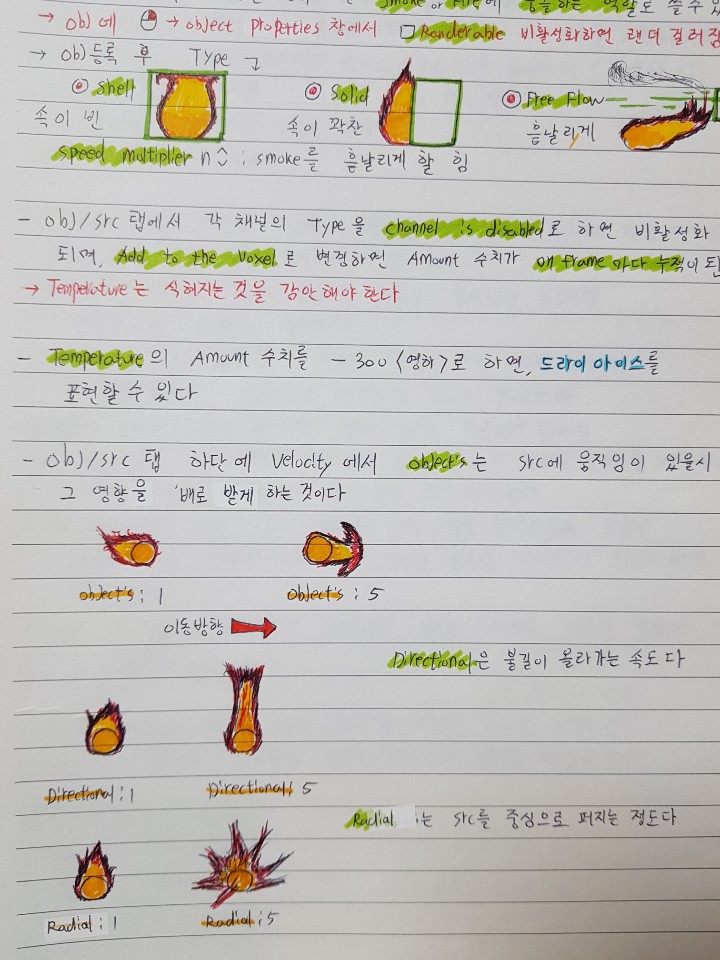 Smoke or Fire에 영향을 하는 역할도 쓸 수 있
→ obj에 → object properties 창에서 □ Renderable 비활성화하면 랜더 걸러짐
→ obj등록 후 Type
Shell
Solid
Free Flow
속이 빈
속이 꽉찬
흩날리게
speed multiplier n : smoke를 흩날리게 할 힘
- obj/src 탭에서 각 채널의 Type을 channel is disabled로 하면 비활성화
되며, Add to the voxel로 변경하면 Amount 수치가 매 frame 마다 누적이 된
→ Temperature는 식혀지는 것을 감안해야한다
- Temperature의 Amount 수치를 -300<영하>로 하면, 드라이 아이스를
표현할 수 있다
- obj/src 탭 하단에 Velocity에서 object's는 src에 움직임이 있을시
그 영향을 '배로 받게 하는 것이다
object's : 1
object's : 5
이동방향
Directional은 불길이 올라가는 속도다
Directional : 1
Directional : 5
Radial는 src를 중심으로 퍼지는 정도다
Radial : 1
Radial : 5